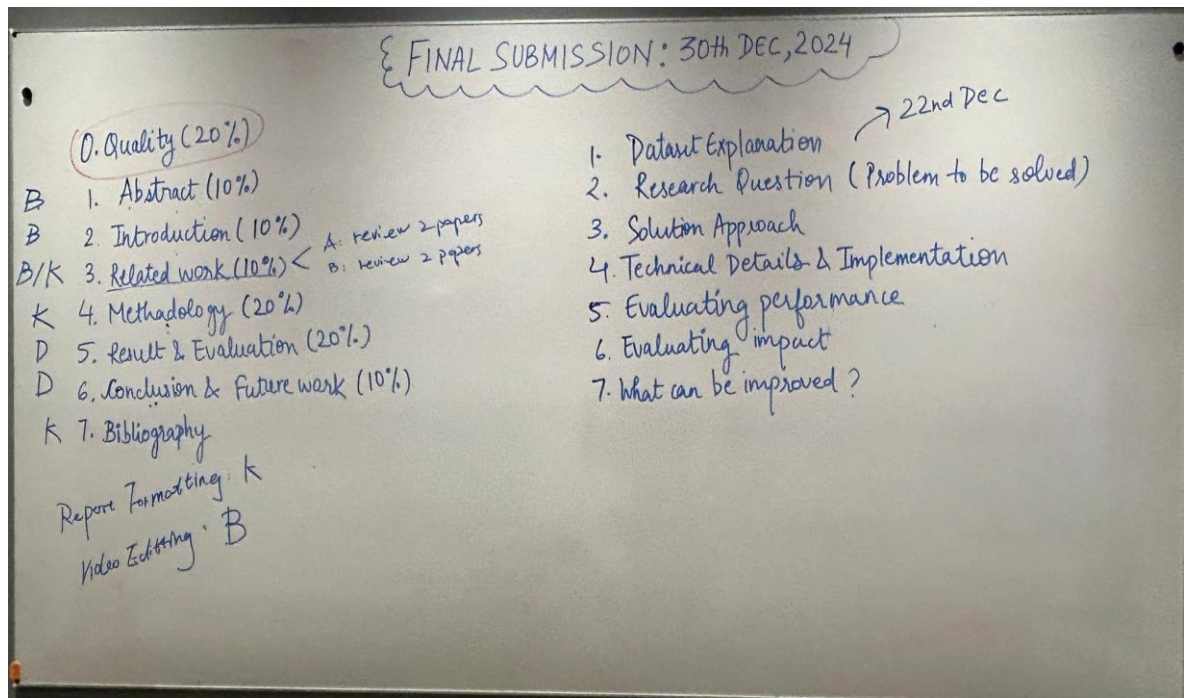 FINAL SUBMISSION: 30th DEC, 2024
0. Quality (20%)
B 1. Abstract (10%)
B 2. Introduction (10%)
B/K 3. Related work (10%) < A: review 2 papers
B: review 2 papers
K 4. Methadology (20%)
D 5. Result & Evaluation (20%)
D 6. Conclusion & Future work (10%)
K 7. Bibliography
Report Formatting: K
Video Editting: B
→ 22nd Dec
1. Dataset Explanation
2. Research Question (Problem to be solved)
3. Solution Approach
4. Technical Details & Implementation
5. Evaluating performance
6. Evaluating impact
7. What can be improved?